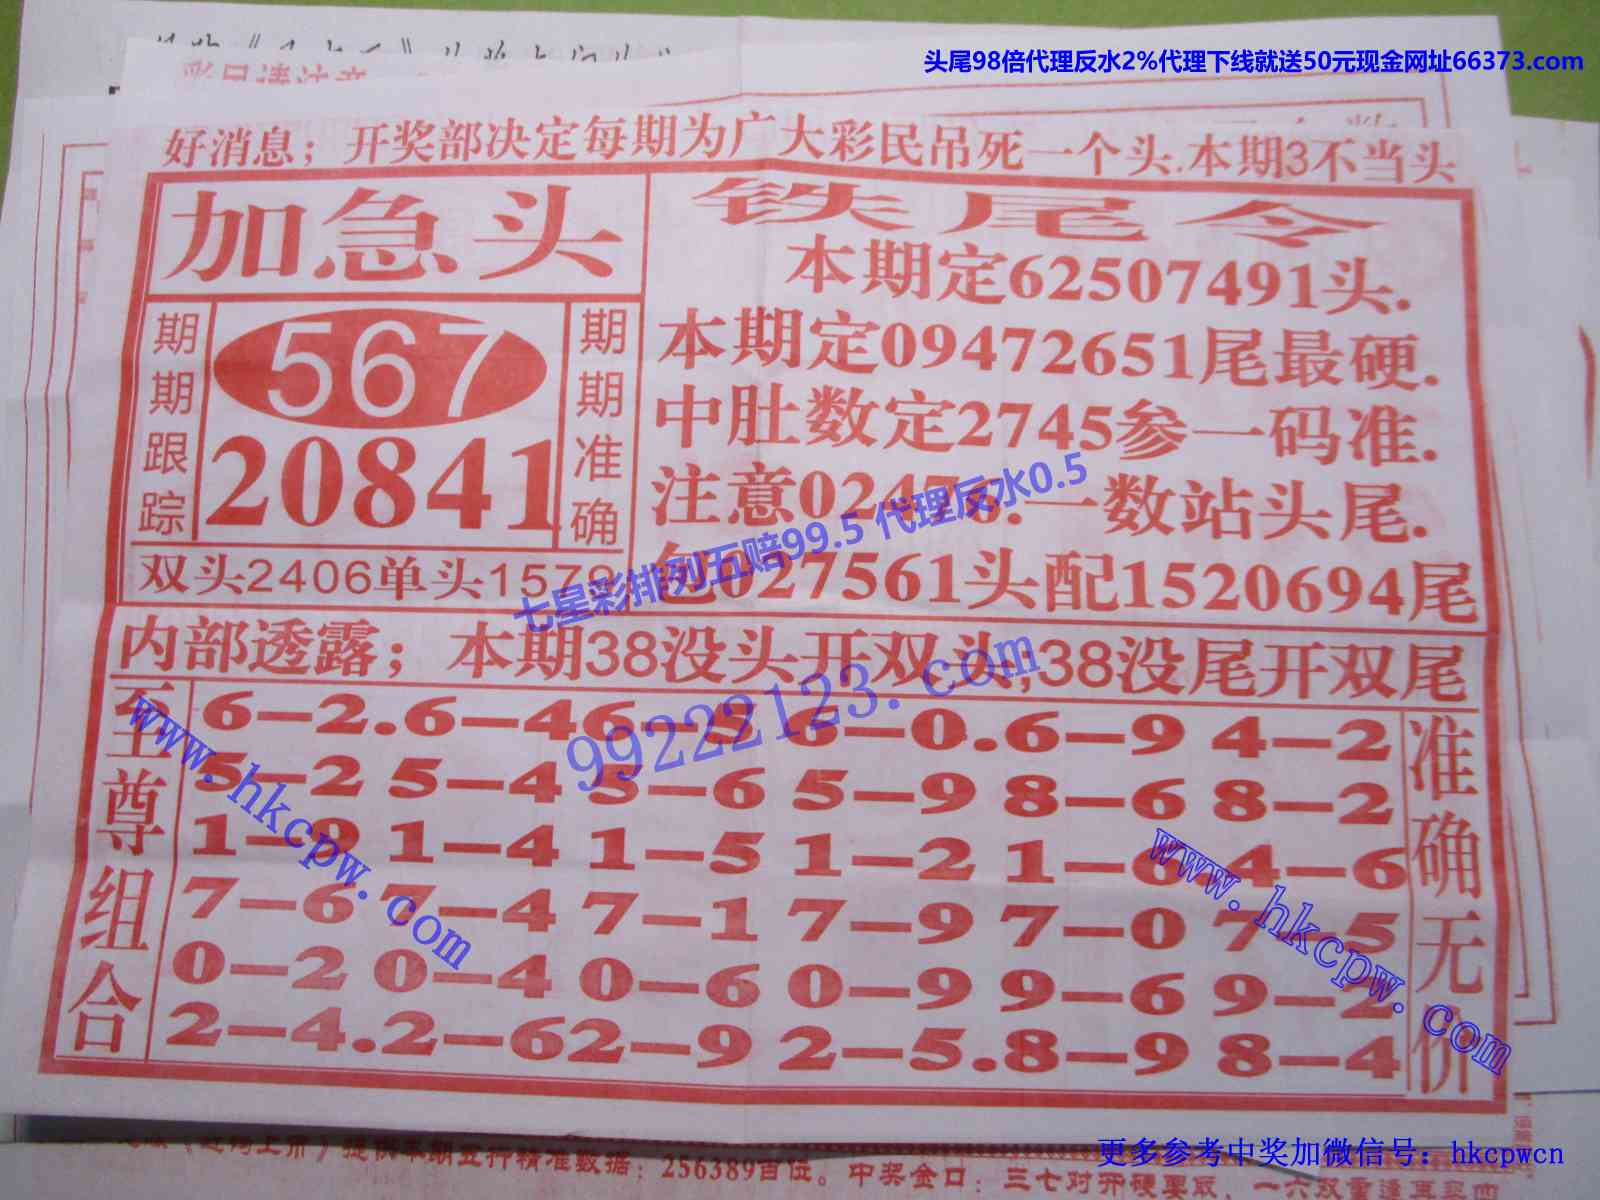 头尾98倍代理反水2%代理下线就送50元现金网址66373.com
彩民请注意
好消息；开奖部决定每期为广大彩民吊死一个头.本期3不当头
加急头
期期跟踪
567
20841
期期准确
双头2406单头1579
铁尾令
本期定62507491头.
本期定09472651尾最硬.
中肚数定2745参一码准.
注意02476.一数站头尾.
包027561头配1520694尾
七星彩排列五赔99.5 代理反水0.5
内部透露；本期38没头开双头;38没尾开双尾
99222123.com
至尊组合
6—2.6—46—5 6—0.6—9 4—2
5—2 5—4 5—6 5—9 8—6 8—2
1—9 1—4 1—5 1—2 1—6 4—6
7—6 7—4 7—1 7—9 7—0 7—5
0—2 0—4 0—6 0—9 9—6 9—2
2—4.2—62—9 2—5.8—9 8—4
准确无价
www.hkcpw.com
www.hkcpw.com
提供本期五行精准数据：256389首位。中奖金口：三七对开硬要取，一六双重逢
更多参考中奖加微信号：hkcpwcn